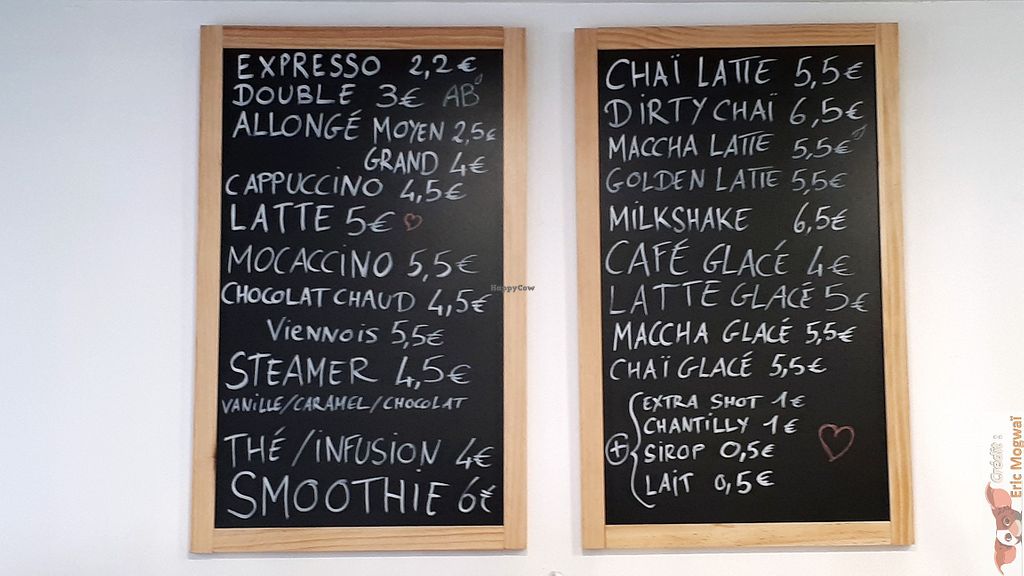 EXPRESSO 2,2€
DOUBLE 3€ AB
ALLONGÉ MOYEN 2,5€
GRAND 4€
CAPPUCCINO 4,5€
LATTE 5€
MOCACCINO 5,5€
CHOCOLAT CHAUD 4,5€
VIENNOIS 5,5€
STEAMER 4,5€
VANILLE/CARAMEL/CHOCOLAT
THÉ/INFUSION 4€
SMOOTHIE 6€
CHAÏ LATTE 5,5€
DIRTY CHAÏ 6,5€
MACCHA LATTE 5,5€
GOLDEN LATTE 5,5€
MILKSHAKE 6,5€
CAFÉ GLACÉ 4€
LATTE GLACÉ 5€
MACCHA GLACÉ 5,5€
CHAÏ GLACÉ 5,5€
+ EXTRA SHOT 1€
CHANTILLY 1€
SIROP 0,5€
LAIT 0,5€
HappyCow
Crédit :
Eric Mogwaï